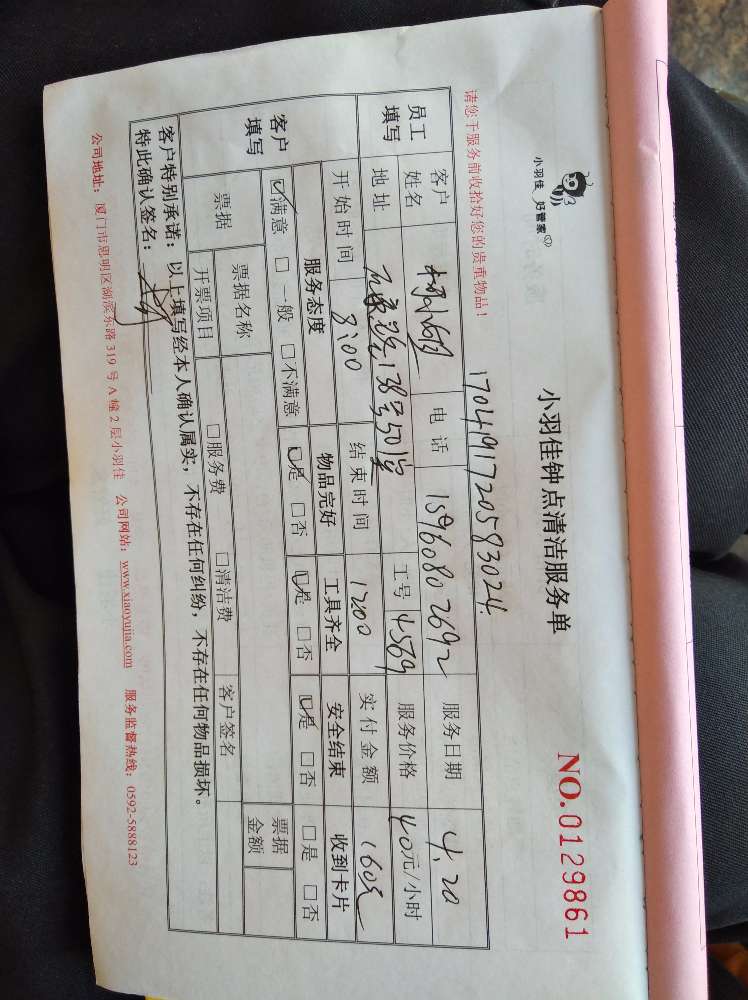 小羽佳 好管家
小羽佳钟点清洁服务单
NO.0129861
请您于服务前收拾好您的贵重物品！
17041917205983024
员工填写
客户姓名 电话 15960802692 服务日期 4.20
地址 138号501室 工号 4569 服务价格 40元/小时
开始时间 8:00 结束时间 12:00 实付金额 160元
客户填写
服务态度 物品完好 工具齐全 安全结束 收到卡片
☑满意 □一般 □不满意 ☑是 □否 ☑是 □否 ☑是 □否 □是 □否
票据 票据名称 票据金额
开票项目 □服务费 □清洁费 客户签名
客户特别承诺：以上填写经本人确认属实，不存在任何纠纷，不存在任何物品损坏。
特此确认签名：
公司地址：厦门市思明区湖滨东路319号A幢2层小羽佳 公司网站：www.xiaoyujia.com 服务监督热线：0592-5888123